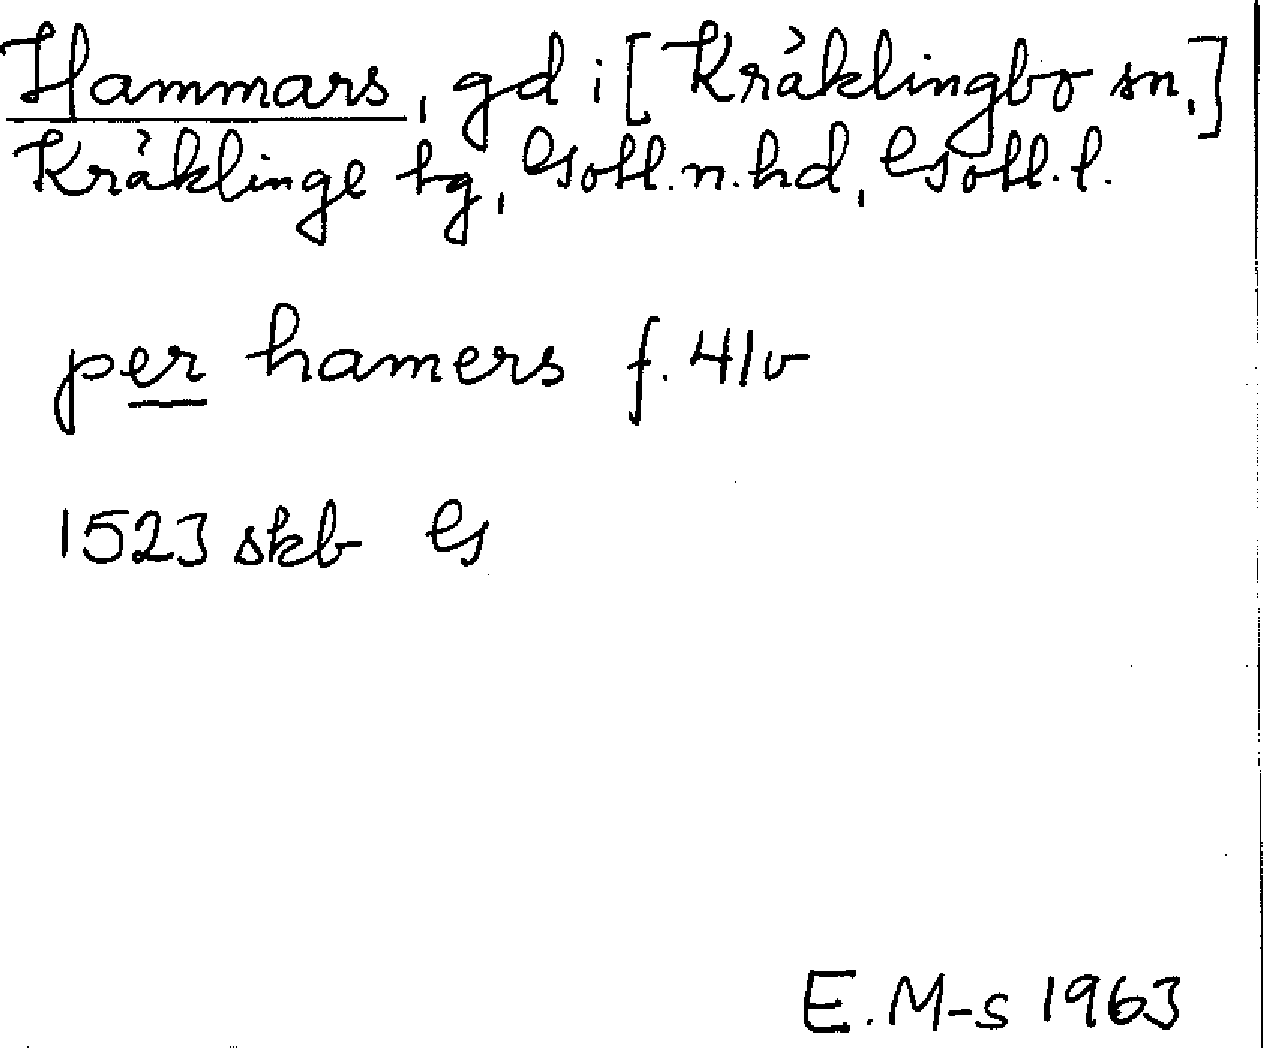 Hammars, gd i [Kräklingbo sn,]
Kräklinge tg, Gotl. n. hd, Gotl. l.
per hamers f. 41v
1523 skb G
E. M-s 1963